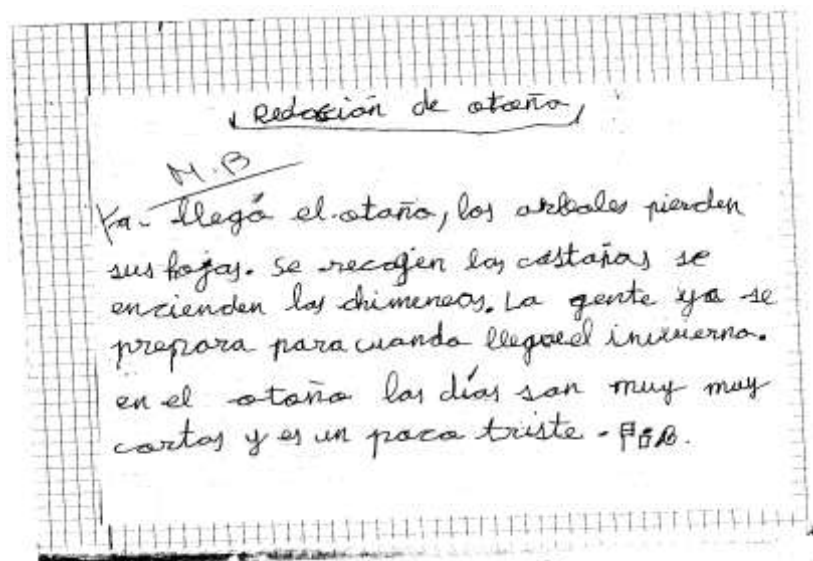 Redacción de otoño
M.B
Ya llegó el otoño, los arboles pierden
sus hojas. Se recogen las castañas se
encienden las chimeneas. La gente ya se
prepara para cuando llegue el invierno.
en el otoño los días son muy muy
cortos y es un poco triste -